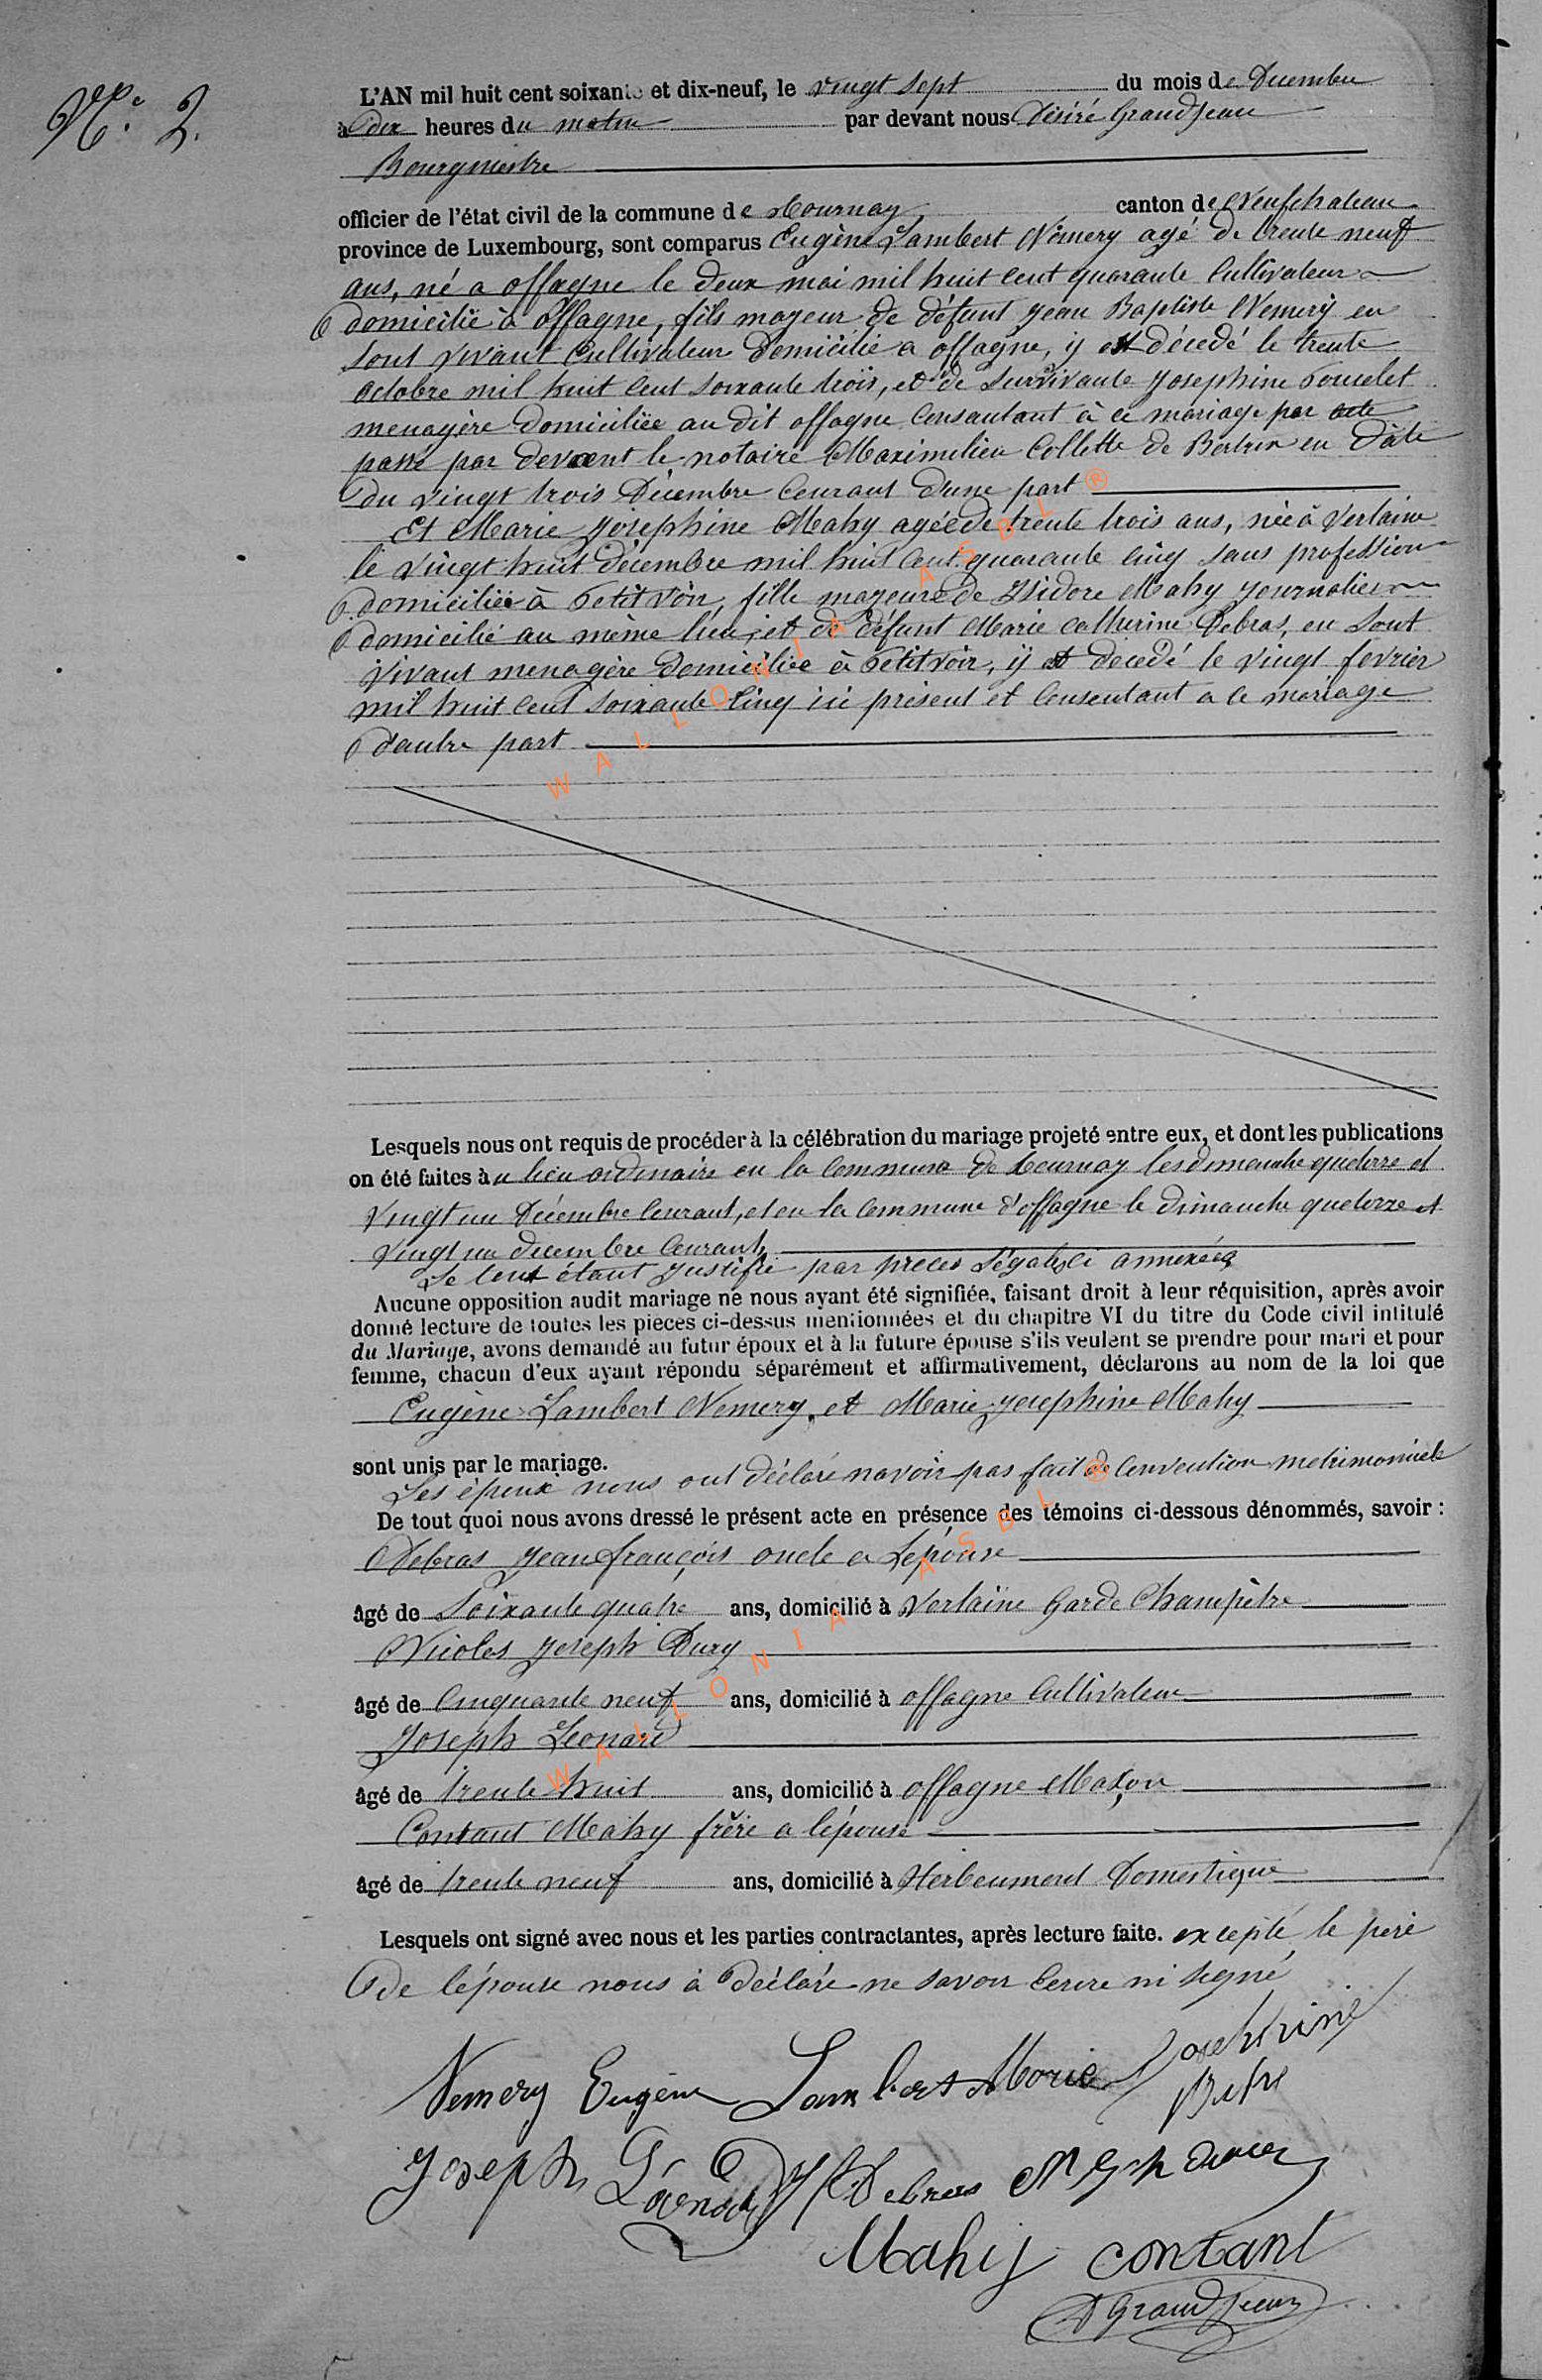 N° 2.
L'AN mil huit cent soixante et dix-neuf, le vingt sept du mois de Decembre
à dix heures du matin par devant nous Désiré Grandjean
Bourgmestre
officier de l'état civil de la commune de Tournay, canton de Neufchateau
province de Luxembourg, sont comparus Eugène Lambert Némery agé de trente neuf
ans, né a offagne le deux mai mil huit cent quarante cultivateur
domicilié à offagne, fils majeur de défunt jean Baptiste Nemery en
sont vivant cultivateur domicilié a offagne, y est décedé le trente
octobre mil huit cent soixante trois, et de survivante josephine Poncelet
menagère domiciliée au dit offagne consantant à ce mariage par acte
passé par devant le notaire Maximilien Collette de Bertrix en date
du vingt trois Décembre courant d'une part
Et Marie josephine Mahy agée de trente trois ans, née à Verlaine
le vingt huit décembre mil huit cent quarante cinq sans profession
domiciliée à Petitvoir, fille majeure de Isidore Mahy journalier
domicilié au même lieu, et de défunt Marie catherine Debras, en sont
vivant menagère domiciliée à Petitvoir, y est decedé le vingt fevrier
mil huit cent soixante cinq ici présent et consentant a ce mariage
d'autre part
WALLONIA ASBL ®
Lesquels nous ont requis de procéder à la célébration du mariage projeté entre eux, et dont les publications
on été faites au lieu ordinaire en la commune de tournay les dimanche quatorze et
vingt un Décembre courant, et en la commune d'offagne le dimanche quatorze et
vingt un decembre courant,
Le tout étant justifié par pieces Légales ci annexées
Aucune opposition audit mariage ne nous ayant été signifiée, faisant droit à leur réquisition, après avoir
donné lecture de toutes les pieces ci-dessus mentionnées et du chapitre VI du titre du Code civil intitulé
du Mariage, avons demandé au futur époux et à la future épouse s'ils veulent se prendre pour mari et pour
femme, chacun d'eux ayant répondu séparément et affirmativement, déclarons au nom de la loi que
Eugène Lambert Nemery, et Marie josephine Mahy
sont unis par le mariage.
Les époux nous ont déclaré navoir pas fait de convention matrimoniale
De tout quoi nous avons dressé le présent acte en présence des témoins ci-dessous dénommés, savoir :
Debras jean françois oncle a Lépouse
âgé de Soixante quatre ans, domicilié à Verlaine Garde Champêtre
Nicolas joseph Dury
âgé de Cinquante neuf ans, domicilié à offagne Cultivateur
Joseph Leonard
âgé de trente huit ans, domicilié à offagne Maçon
Contant Mahy frère a lépouse
âgé de trente neuf ans, domicilié à Herbeumont Domestique
Lesquels ont signé avec nous et les parties contractantes, après lecture faite. excepté le pere
de lépouse nous à déclaré ne savoir ecrire ni signé
Nemery Eugène Lambert Marie
Joseph Léonard J f Debras
Mahij contant
D Grandjean
WALLONIA ASBL ®